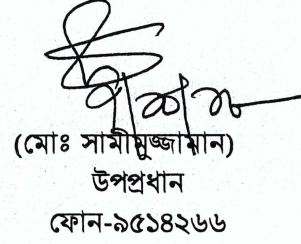 (মোঃ সামীমুজ্জামান)
উপপ্রধান
ফোন-৯৫১৪২৬৬